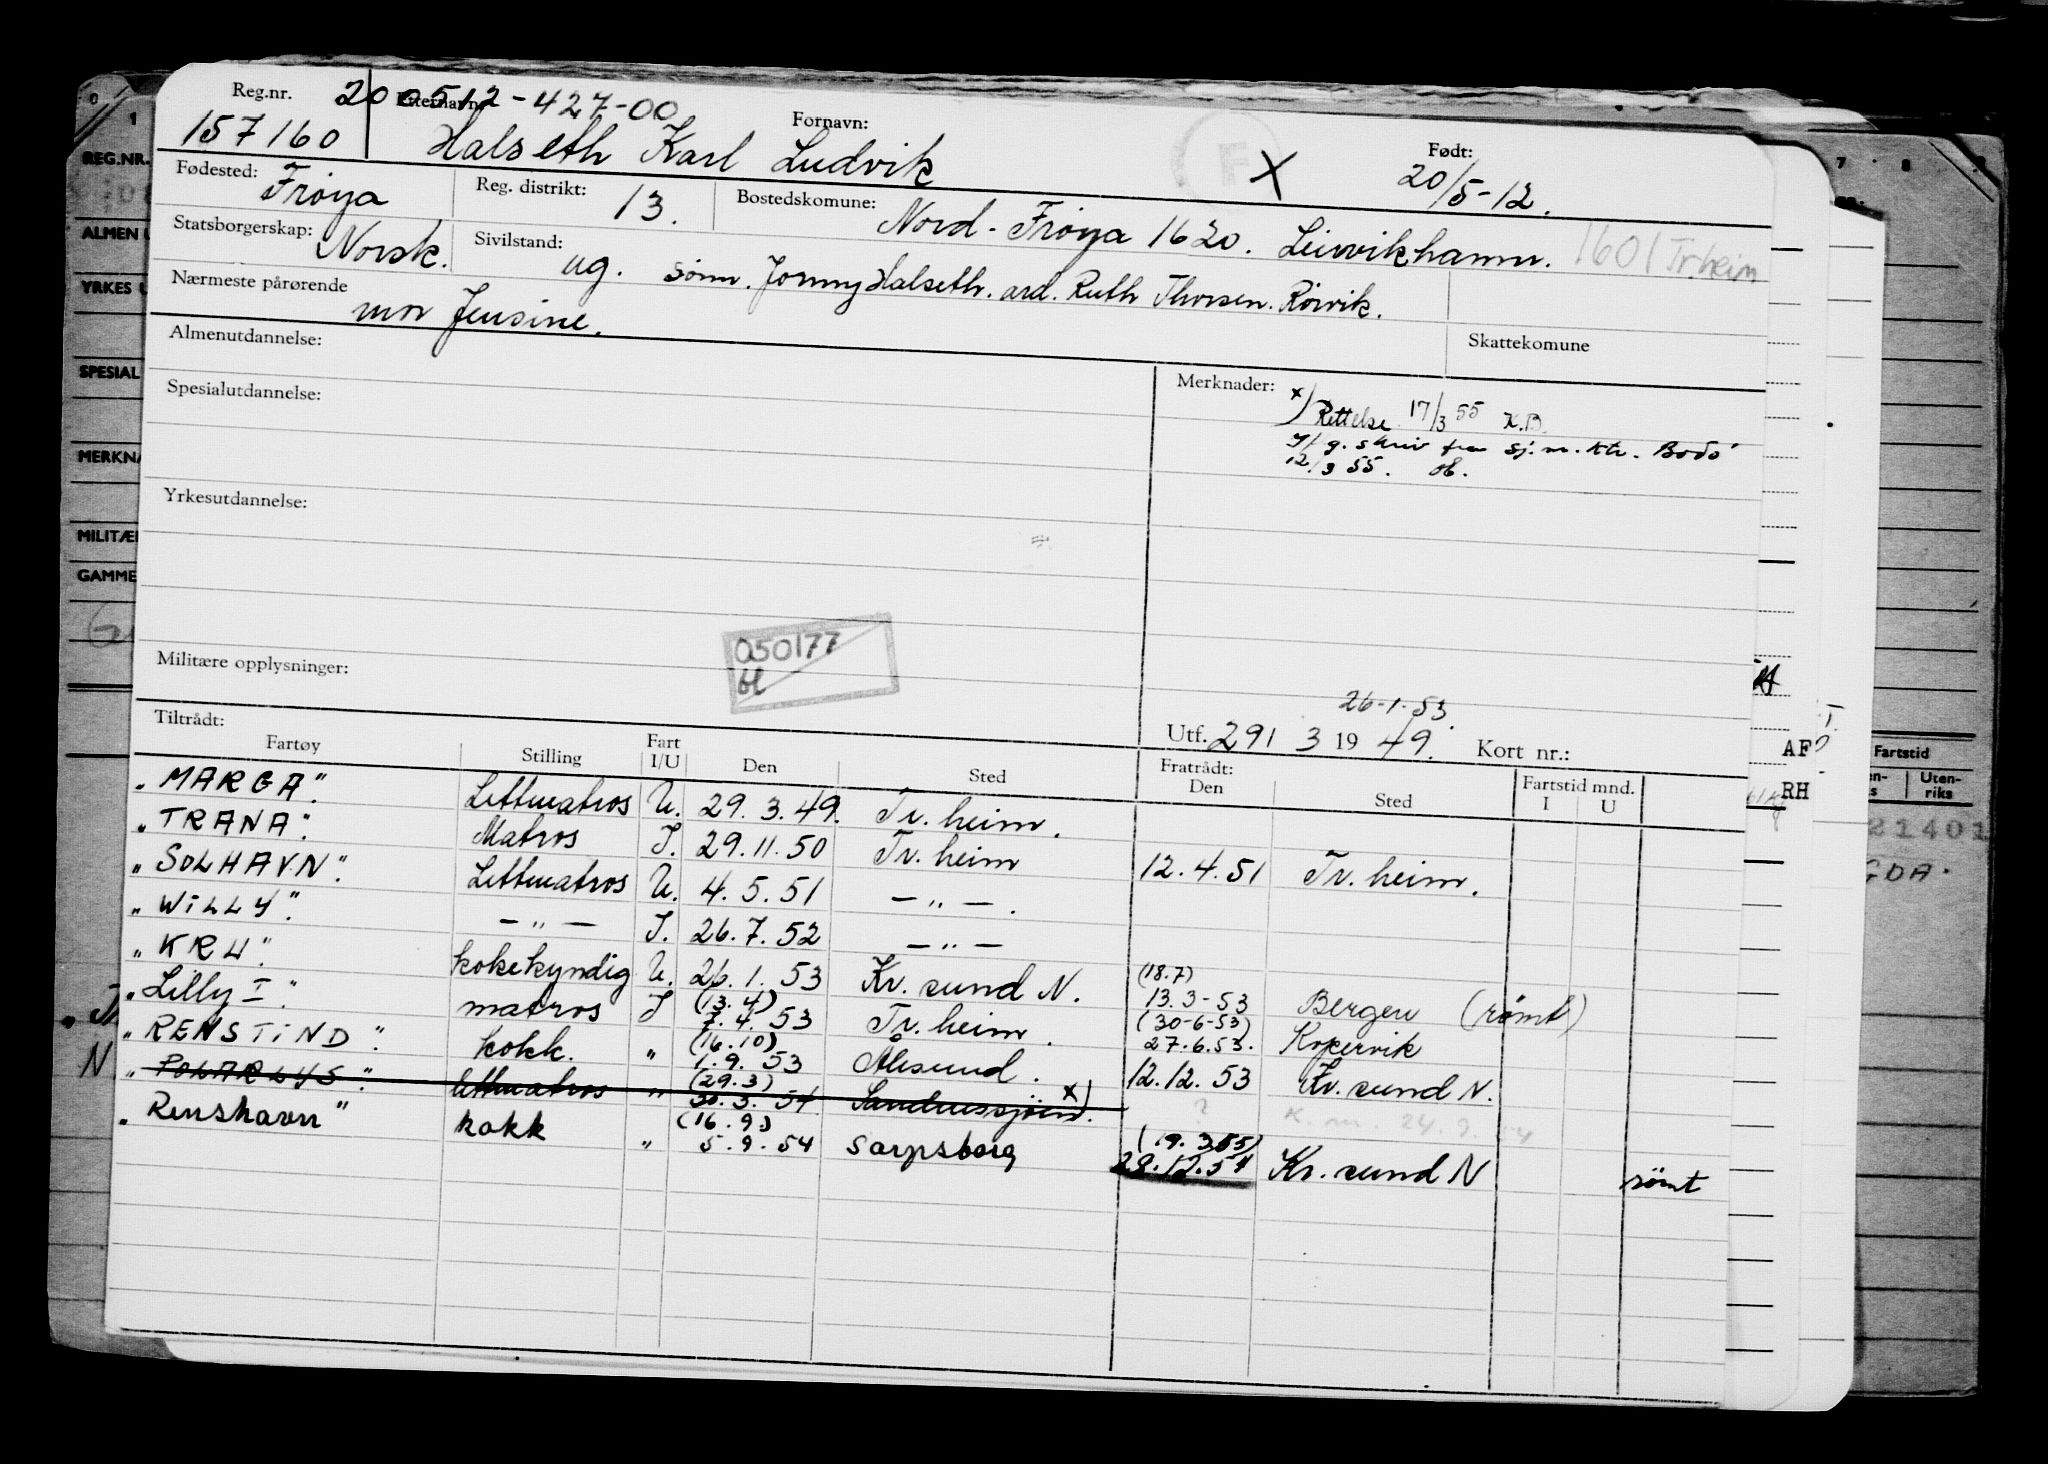 Reg.nr. 200512-427-00 Fornavn: Født:
157160 Halseth Karl Ludvik F X 20/5-12.
Fødested: Frøya Reg. distrikt: 13. Bostedskomune: Nord-Frøya 1620. Leirvikhamn. 1601 Tr.heim
Statsborgerskap: Norsk. Sivilstand: ug. sønn. Jonny Halseth. ard. Ruth Thorsen. Rörvik.
Nærmeste pårørende mor Jensine.
Almenutdannelse: Skattekomune
Spesialutdannelse: Merknader: x) Rettelse 17/3 55 K.B.
flg. skriv fra Sj.m.ktr. Bodö
12/3 55.
Yrkesutdannelse:
050177
Militære opplysninger:
26-1-53.
Tiltrådt: Utf. 291 3 19 49. Kort nr.:
Fartøy Stilling Fart I/U Den Sted Fratrådt: Den Sted Fartstid mnd. I U
"MARGA". Lettmatros U. 29.3.49. Tr.heim.
"TRANA". Matros I. 29.11.50 Tr.heim 12.4.51 Tr.heim.
"SOLHAVN". Lettmatros U. 4.5.51 — " —.
"WILLY". — " — I. 26.7.52 — " —
"KRU". kokekyndig U. 26.1.53 Kr.sund N. (18.7) 13.3-53 Bergen (rømt)
"Lilly I". matros I (13.4) 7.4.53 Tr.heim. (30-6-53) 27.6.53. Kopervik
"RENSTIND". kokk. " (16.10) 1.9.53 Ålesund. 12.12.53 Kr.sund N.
"POLARLYS". lettmatros " (29.3) 30.3.54 Sandnessjöen. x) ?
"Renshavn" kokk " (16.9) 5.9.54 Sarpsborg (19.3.55) 28.12.54 Kr.sund N römt
REG.NR.
ALMEN U
YRKES U
SPESIAL
MERKNA
MILITÆR
GAMME
AF
RH
Fartstid
Uten-
riks
21401
GDA.